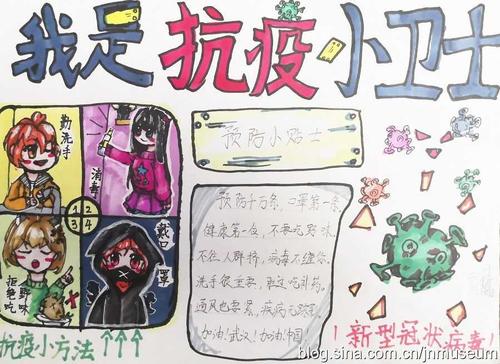 我是抗疫小卫士
勤洗手
消毒
1 2
3 4
拒绝吃野味
戴口罩
抗疫小方法↑↑↑
预防小贴士
预防千万条,口罩第一条
健康第一位,不要吃野味
不往人群挤,病毒不缠你
洗手很重要,别忘吃补药。
通风也要紧,疾病无踪影
加油!武汉!加油!中国
!新型冠状病毒!
blog.sina.com.cn/jnmuseum